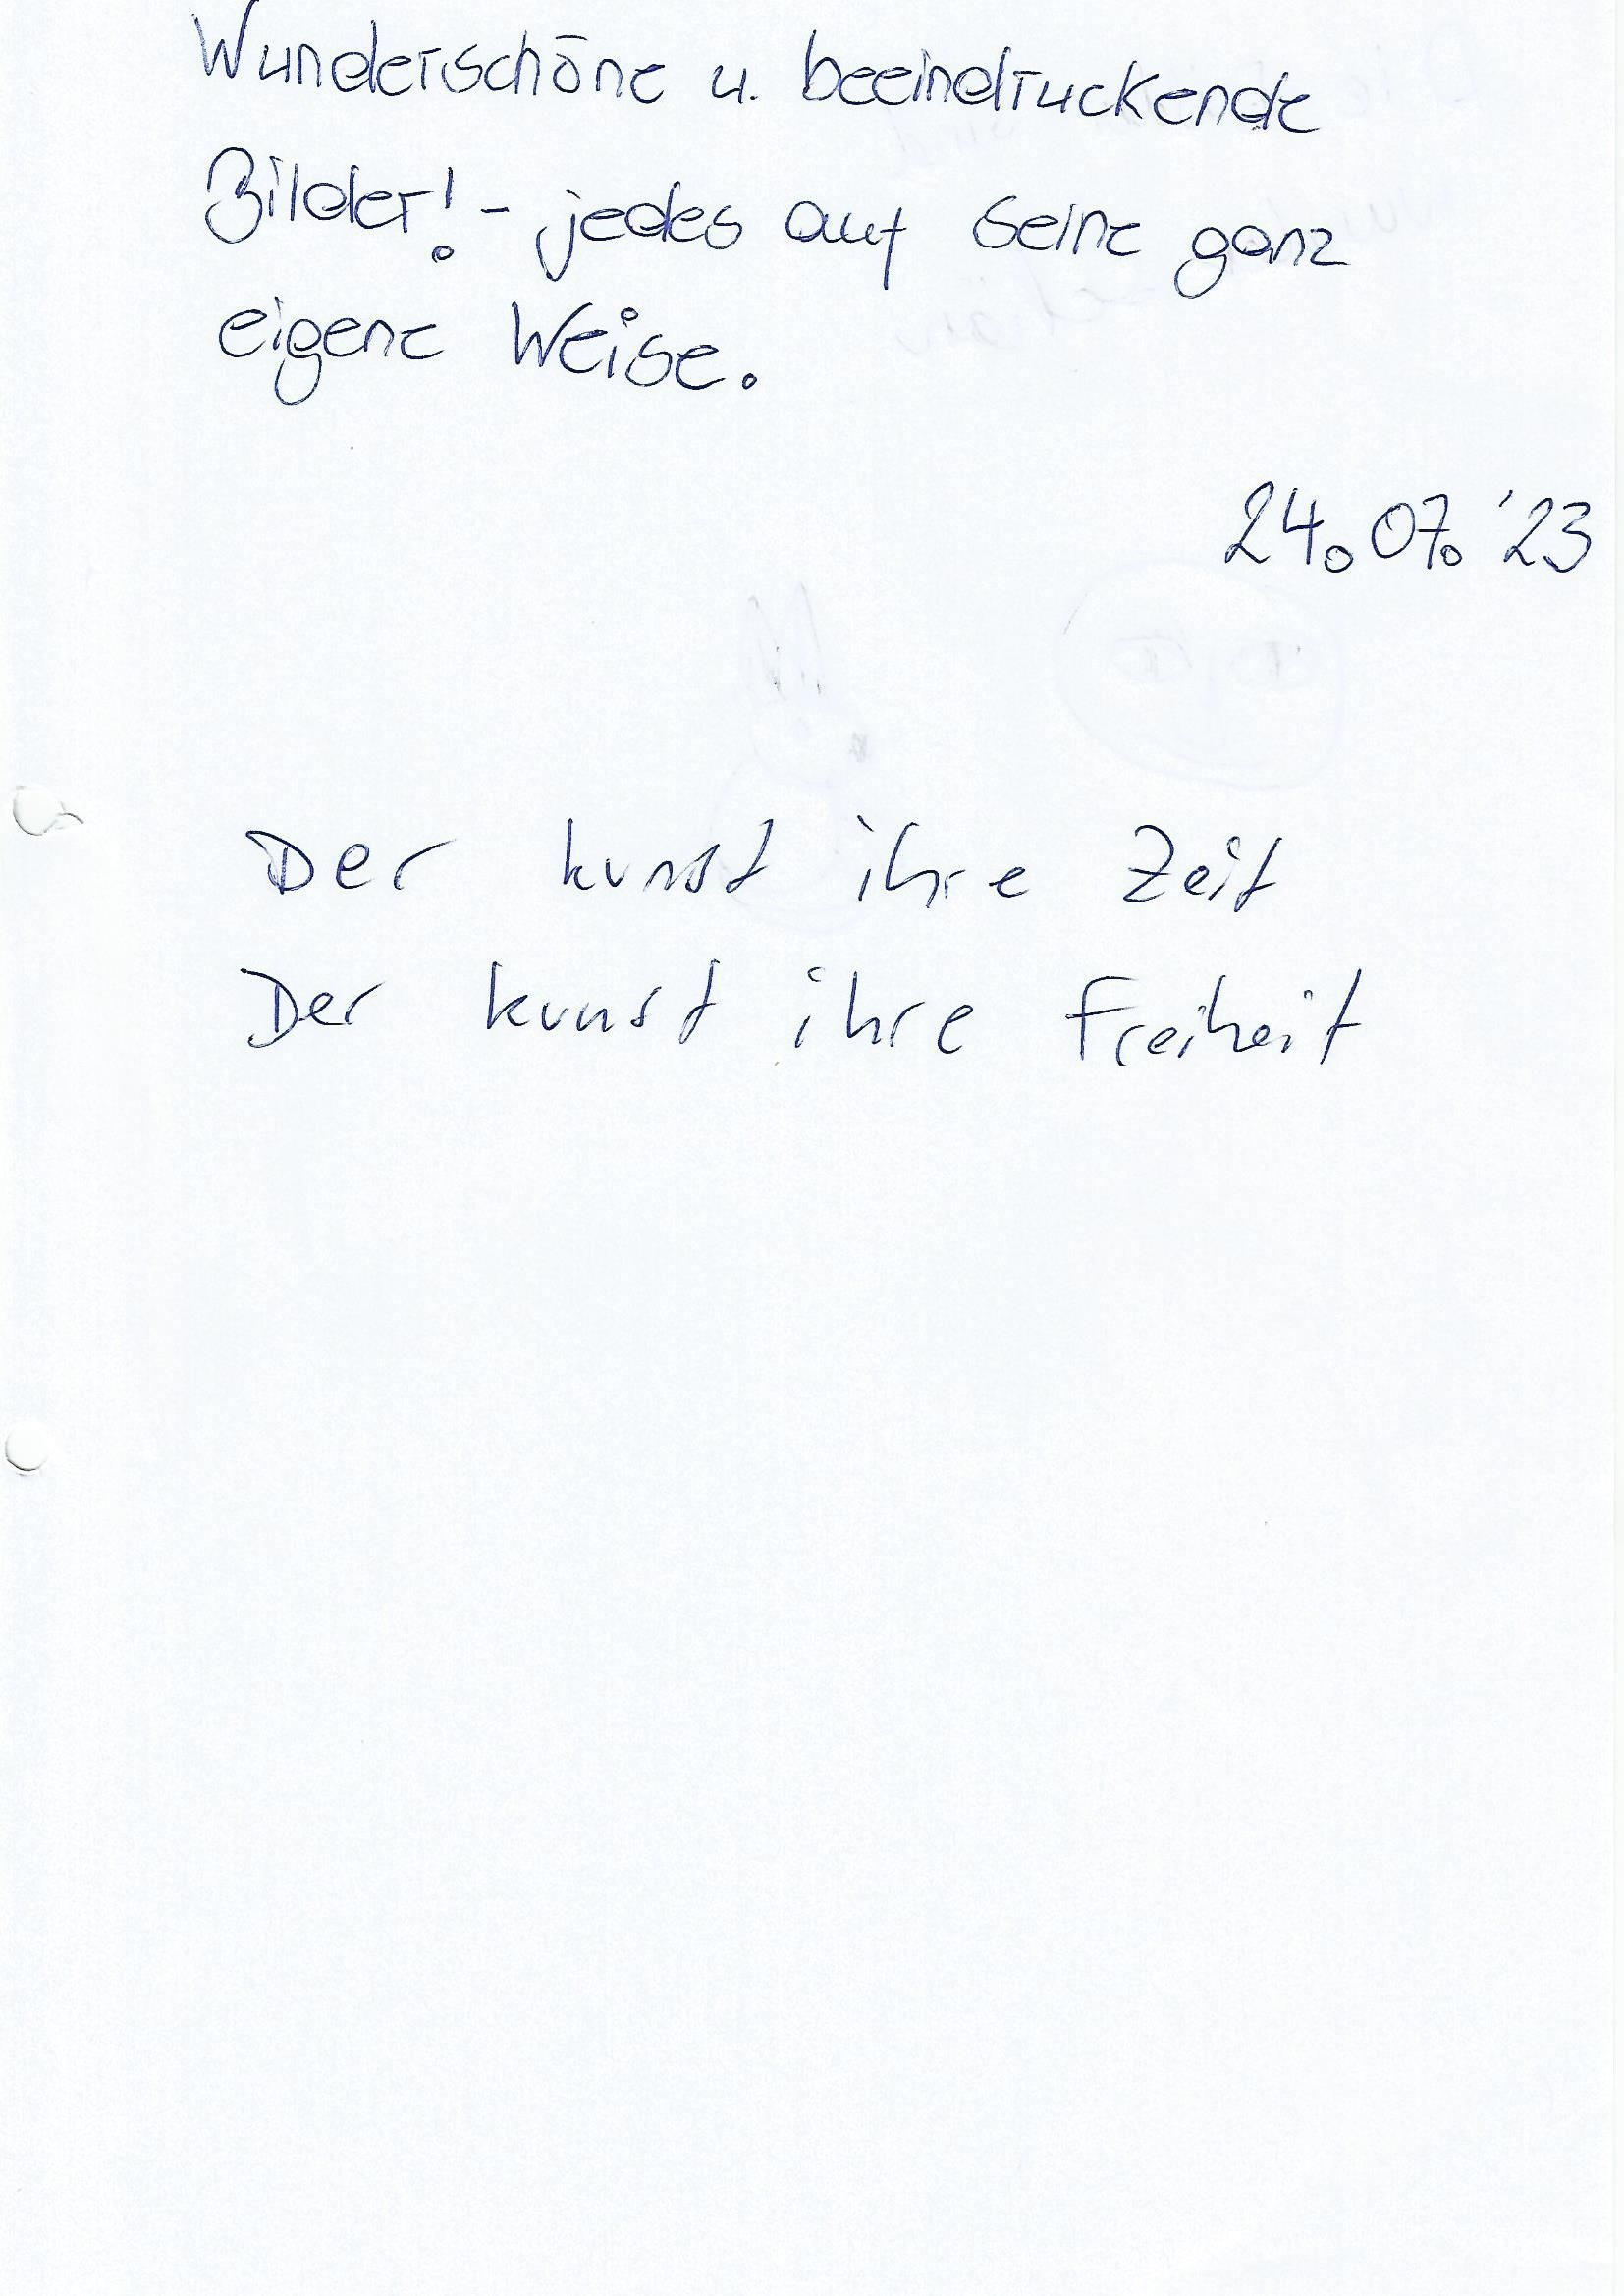 Wunderschöne u. beeindruckende
Bilder! - jedes auf seine ganz
eigene Weise.
24.07.'23
Der kunst ihre Zeit
Der kunst ihre Freiheit